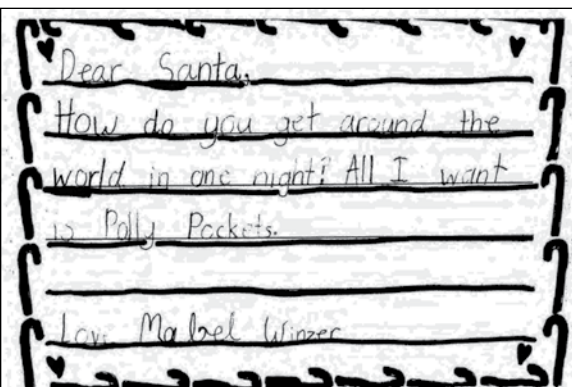 Dear Santa,
How do you get around the
world in one night? All I want
is Polly Pockets.
Love Mabel Winzer